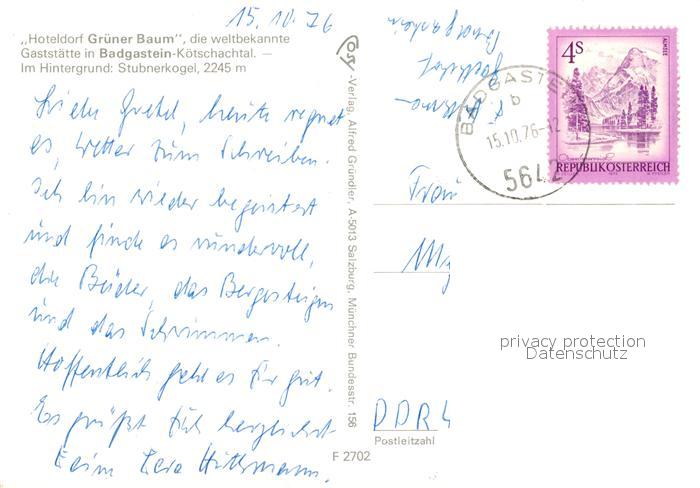 15.10.76
„Hoteldorf Grüner Baum", die weltbekannte
Gaststätte in Badgastein-Kötschachtal. —
Im Hintergrund: Stubnerkogel, 2245 m
Liebe Gretel, heute regnet
es, Wetter zum Schreiben.
Ich bin wieder begeistert
und finde es wundervoll,
die Bäder, das Bergsteigen
und das Schwimmen.
Hoffentlich geht es Dir gut.
Es grüßt Dich herzlichst
Deine
Verlag Alfred Gründler, A-5013 Salzburg, Münchner Bundesstr. 156
F 2702
Badgastein
BADGASTEIN
b
15.10.76-12
5642
4S
ALMSEE
REPUBLIK ÖSTERREICH
Frau
privacy protection
Datenschutz
DDR
Postleitzahl